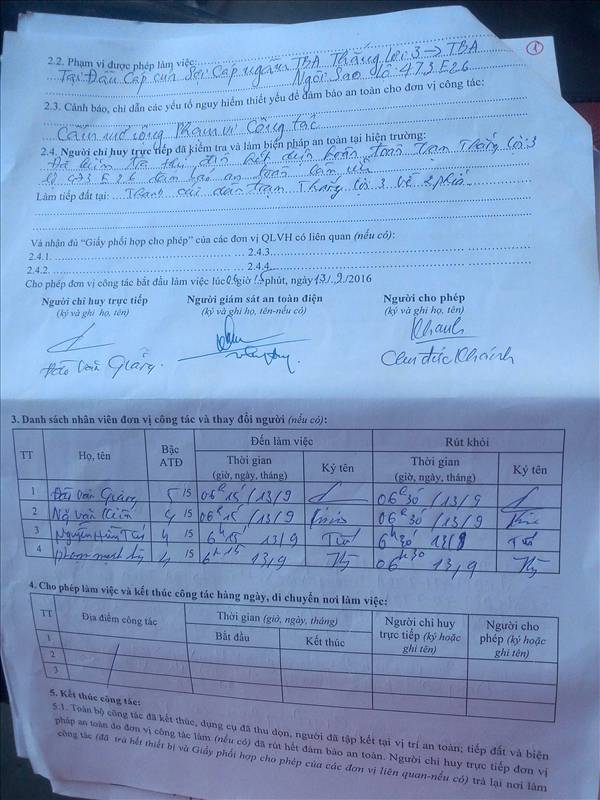 1
2.2. Phạm vi được phép làm việc:
Tại Đầu Cáp của Sợi Cáp ngầm TBA Thắng Lợi 3 → TBA
Ngôi Sao lộ 473 E26
2.3. Cảnh báo, chỉ dẫn các yếu tố nguy hiểm thiết yếu để đảm bảo an toàn cho đơn vị công tác:
Cấm mở rộng Phạm vi Công tác
2.4. Người chỉ huy trực tiếp đã kiểm tra và làm biện pháp an toàn tại hiện trường:
Đã kiểm tra điện hết điện hoàn toàn trạm Thắng lợi 3
lộ 473 E26 đảm bảo an toàn làm việc
Làm tiếp đất tại: Thanh cái dẫn trạm Thắng lợi 3 về 2 phía
Và nhận đủ “Giấy phối hợp cho phép” của các đơn vị QLVH có liên quan (nếu có):
2.4.1. 2.4.3.
2.4.2. 2.4.4.
Cho phép đơn vị công tác bắt đầu làm việc lúc 06 giờ 15 phút, ngày 13/9/2016
Người chỉ huy trực tiếp Người giám sát an toàn điện Người cho phép
(ký và ghi họ, tên) (ký và ghi họ, tên-nếu có) (ký và ghi họ, tên)
Khanh
Đào Văn Giảng. Chu Đức Khánh
3. Danh sách nhân viên đơn vị công tác và thay đổi người (nếu có):
TT Họ, tên Bậc ATĐ Đến làm việc Rút khỏi
Thời gian (giờ, ngày, tháng) Ký tên Thời gian (giờ, ngày, tháng) Ký tên
1 Đào Văn Giảng 5/5 06h15'/13/9 06h30/13/9
2 Ngô Văn Kiên 4/5 06h15'/13/9 06h30'/13/9
3 Nguyễn Hữu Tú 4/5 6h15' 13/9 Tú 6h30' 13/9 Tú
4 Phạm Mạnh 4/5 6h15 13/9 06h30 13/9
4. Cho phép làm việc và kết thúc công tác hàng ngày, di chuyển nơi làm việc:
TT Địa điểm công tác Thời gian (giờ, ngày, tháng) Người chỉ huy trực tiếp (ký hoặc ghi tên) Người cho phép (ký hoặc ghi tên)
Bắt đầu Kết thúc
1
2
3
5. Kết thúc công tác:
5.1. Toàn bộ công tác đã kết thúc, dụng cụ đã thu dọn, người đã tập kết tại vị trí an toàn; tiếp đất và biện
pháp an toàn do đơn vị công tác làm (nếu có) đã rút hết đảm bảo an toàn. Người chỉ huy trực tiếp đơn vị
công tác (đã trả hết thiết bị và Giấy phối hợp cho phép của các đơn vị liên quan-nếu có) trả lại nơi làm